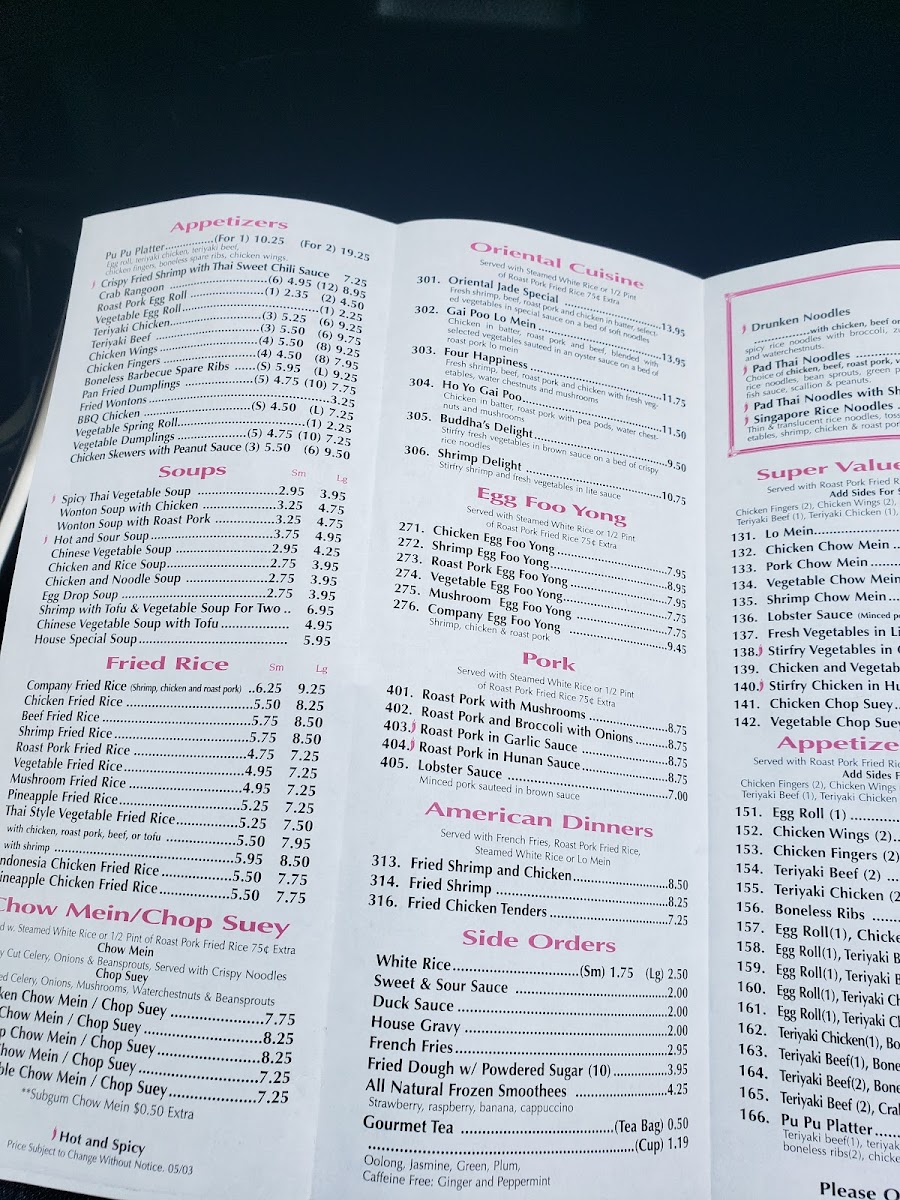 Appetizers
Pu Pu Platter...............(For 1) 10.25 (For 2) 19.25
Egg roll, teriyaki chicken, teriyaki beef,
chicken fingers, boneless spare ribs, chicken wings.
Crispy Fried Shrimp with Thai Sweet Chili Sauce 7.25
Crab Rangoon ........................(6) 4.95 (12) 8.95
Roast Pork Egg Roll ...................(1) 2.35 (2) 4.50
Vegetable Egg Roll..............................(1) 2.25
Teriyaki Chicken......................(3) 5.25 (6) 9.25
Teriyaki Beef .........................(3) 5.50 (6) 9.75
Chicken Wings .......................(4) 5.50 (8) 9.25
Chicken Fingers ......................(4) 4.50 (8) 7.95
Boneless Barbecue Spare Ribs ......(S) 5.95 (L) 9.25
Pan Fried Dumplings ................(5) 4.75 (10) 7.75
Fried Wontons .......................................3.25
BBQ Chicken ......................(S) 4.50 (L) 7.25
Vegetable Spring Roll............................(1) 2.25
Vegetable Dumplings................(5) 4.75 (10) 7.25
Chicken Skewers with Peanut Sauce (3) 5.50 (6) 9.50
Soups Sm Lg
Spicy Thai Vegetable Soup ...................2.95 3.95
Wonton Soup with Chicken ..................3.25 4.75
Wonton Soup with Roast Pork ...............3.25 4.75
Hot and Sour Soup...........................3.75 4.95
Chinese Vegetable Soup .....................2.95 4.25
Chicken and Rice Soup......................2.75 3.95
Chicken and Noodle Soup ...................2.75 3.95
Egg Drop Soup ..............................2.75 3.95
Shrimp with Tofu & Vegetable Soup For Two .. 6.95
Chinese Vegetable Soup with Tofu............... 4.95
House Special Soup................................. 5.95
Fried Rice Sm Lg
Company Fried Rice (Shrimp, chicken and roast pork) ..6.25 9.25
Chicken Fried Rice ..........................5.50 8.25
Beef Fried Rice ..............................5.75 8.50
Shrimp Fried Rice............................5.75 8.50
Roast Pork Fried Rice .......................4.75 7.25
Vegetable Fried Rice.........................4.95 7.25
Mushroom Fried Rice .......................4.95 7.25
Pineapple Fried Rice.........................5.25 7.25
Thai Style Vegetable Fried Rice..............5.25 7.50
with chicken, roast pork, beef, or tofu ..............5.50 7.95
with shrimp ....................................5.95 8.50
ndonesia Chicken Fried Rice.................5.50 7.75
ineapple Chicken Fried Rice.................5.50 7.75
Chow Mein/Chop Suey
d w. Steamed White Rice or 1/2 Pint of Roast Pork Fried Rice 75¢ Extra
Chow Mein
y Cut Celery, Onions & Beansprouts, Served with Crispy Noodles
Chop Suey
ed Celery, Onions, Mushrooms, Waterchestnuts & Beansprouts
ken Chow Mein / Chop Suey ...................7.75
Chow Mein / Chop Suey .....................8.25
p Chow Mein / Chop Suey ...................8.25
Chow Mein / Chop Suey.....................7.25
ble Chow Mein / Chop Suey.................7.25
**Subgum Chow Mein $0.50 Extra
Hot and Spicy
Price Subject to Change Without Notice. 05/03
Oriental Cuisine
Served with Steamed White Rice or 1/2 Pint
of Roast Pork Fried Rice 75¢ Extra
301. Oriental Jade Special ......................13.95
Fresh shrimp, beef, roast pork and chicken in batter, select-
ed vegetables in special sauce on a bed of soft noodles
302. Gai Poo Lo Mein ..........................13.95
Chicken in batter, roast pork and beef, blended with
selected vegetables sauteed in an oyster sauce on a bed of
roast pork lo mein
303. Four Happiness ............................11.75
Fresh shrimp, beef, roast pork and chicken with fresh veg-
etables, water chestnuts and mushrooms
304. Ho Yo Gai Poo.............................11.50
Chicken in batter, roast pork with pea pods, water chest-
nuts and mushrooms
305. Buddha's Delight ..........................9.50
Stirfry fresh vegetables in brown sauce on a bed of crispy
rice noodles
306. Shrimp Delight ............................10.75
Stirfry shrimp and fresh vegetables in lite sauce
Egg Foo Yong
Served with Steamed White Rice or 1/2 Pint
of Roast Pork Fried Rice 75¢ Extra
271. Chicken Egg Foo Yong......................7.95
272. Shrimp Egg Foo Yong......................8.95
273. Roast Pork Egg Foo Yong ..................7.95
274. Vegetable Egg Foo Yong...................7.75
275. Mushroom Egg Foo Yong .................7.75
276. Company Egg Foo Yong ...................9.45
Shrimp, chicken & roast pork
Pork
Served with Steamed White Rice or 1/2 Pint
of Roast Pork Fried Rice 75¢ Extra
401. Roast Pork with Mushrooms ...............8.75
402. Roast Pork and Broccoli with Onions .........8.75
403. Roast Pork in Garlic Sauce ...................8.75
404. Roast Pork in Hunan Sauce...................8.75
405. Lobster Sauce ................................7.00
Minced pork sauteed in brown sauce
American Dinners
Served with French Fries, Roast Pork Fried Rice,
Steamed White Rice or Lo Mein
313. Fried Shrimp and Chicken....................8.50
314. Fried Shrimp ................................8.25
316. Fried Chicken Tenders.......................7.25
Side Orders
White Rice...........................(Sm) 1.75 (Lg) 2.50
Sweet & Sour Sauce ................................2.00
Duck Sauce.........................................2.00
House Gravy .......................................2.00
French Fries........................................2.95
Fried Dough w/ Powdered Sugar (10)..............3.95
All Natural Frozen Smoothees ....................4.25
Strawberry, raspberry, banana, cappuccino
Gourmet Tea ...........................(Tea Bag) 0.50
..............................................(Cup) 1.19
Oolong, Jasmine, Green, Plum,
Caffeine Free: Ginger and Peppermint
Drunken Noodles
....................with chicken, beef or
spicy rice noodles with broccoli,
and waterchestnuts.
Pad Thai Noodles ..........
Choice of chicken, beef, roast pork,
rice noodles, bean sprouts, green
fish sauce, scallion & peanuts.
Pad Thai Noodles with Sh
Singapore Rice Noodles .
Thin & translucent rice noodles, toss
etables, shrimp, chicken & roast por
Super Value
Served with Roast Pork Fried R
Add Sides For
Chicken Fingers (2), Chicken Wings (2),
Teriyaki Beef (1), Teriyaki Chicken (1),
131. Lo Mein.............
132. Chicken Chow Mein ..
133. Pork Chow Mein ......
134. Vegetable Chow Mein
135. Shrimp Chow Mein....
136. Lobster Sauce (Minced p
137. Fresh Vegetables in Li
138. Stirfry Vegetables in
139. Chicken and Vegetab
140. Stirfry Chicken in Hu
141. Chicken Chop Suey..
142. Vegetable Chop Suey
Appetize
Served with Roast Pork Fried Ric
Add Sides F
Chicken Fingers (2), Chicken Wings
Teriyaki Beef (1), Teriyaki Chicken
151. Egg Roll (1) ..........
152. Chicken Wings (2)..
153. Chicken Fingers (2)
154. Teriyaki Beef (2) ...
155. Teriyaki Chicken (2
156. Boneless Ribs ......
157. Egg Roll(1), Chicke
158. Egg Roll(1), Teriyaki B
159. Egg Roll(1), Teriyaki B
160. Egg Roll(1), Teriyaki Ch
161. Egg Roll(1), Teriyaki C
162. Teriyaki Chicken(1), Bo
163. Teriyaki Beef(1), Bone
164. Teriyaki Beef(2), Bone
165. Teriyaki Beef (2), Cra
166. Pu Pu Platter.........
Teriyaki beef(1), teriyak
boneless ribs(2), chicke
Please O